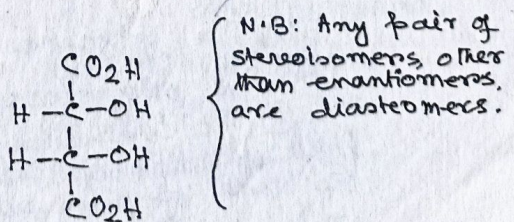 CO2H
H-C-OH
H-C-OH
CO2H
N.B: Any pair of
stereoisomers, other
than enantiomers,
are diasteomers.